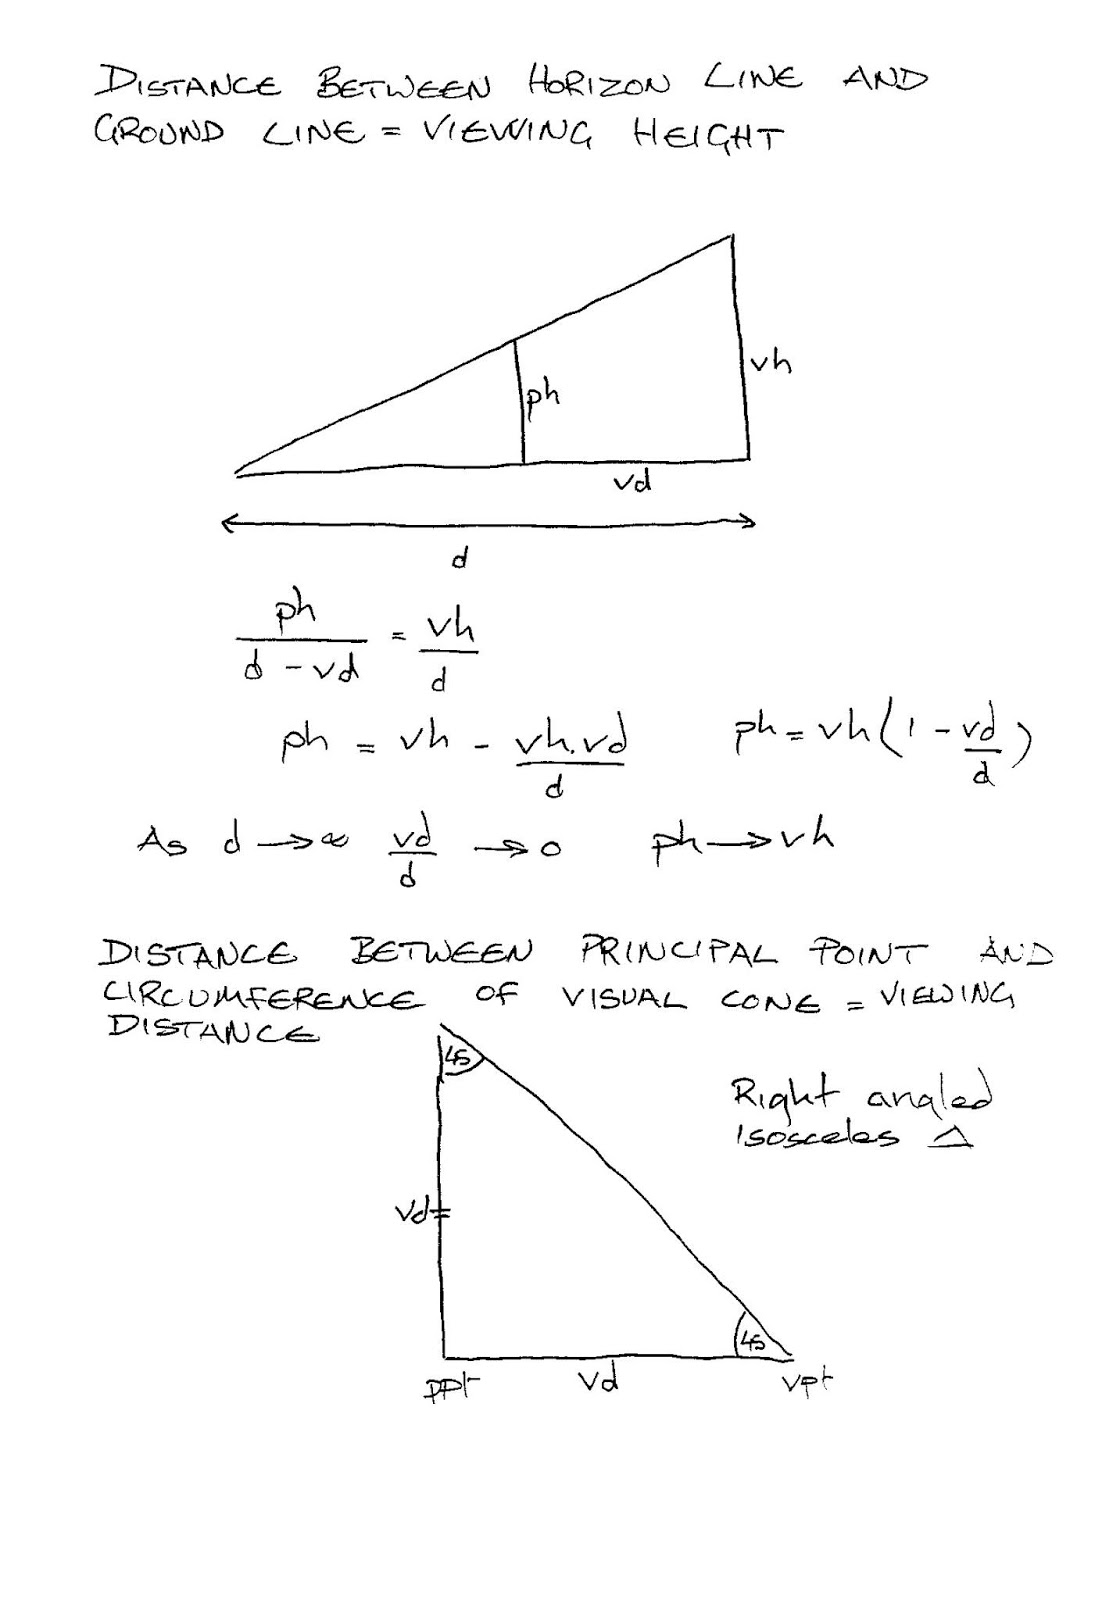 DISTANCE BETWEEN HORIZON LINE AND
GROUND LINE = VIEWING HEIGHT
vh
ph
vd
d
ph / d - vd = vh / d
ph = vh - vh.vd / d    ph = vh(1 - vd/d)
As d → ∞ vd/d → 0 ph → vh
DISTANCE BETWEEN PRINCIPAL POINT AND
CIRCUMFERENCE OF VISUAL CONE = VIEWING
DISTANCE
45
Right angled
Isosceles Δ
vd
45
ppt vd vpt